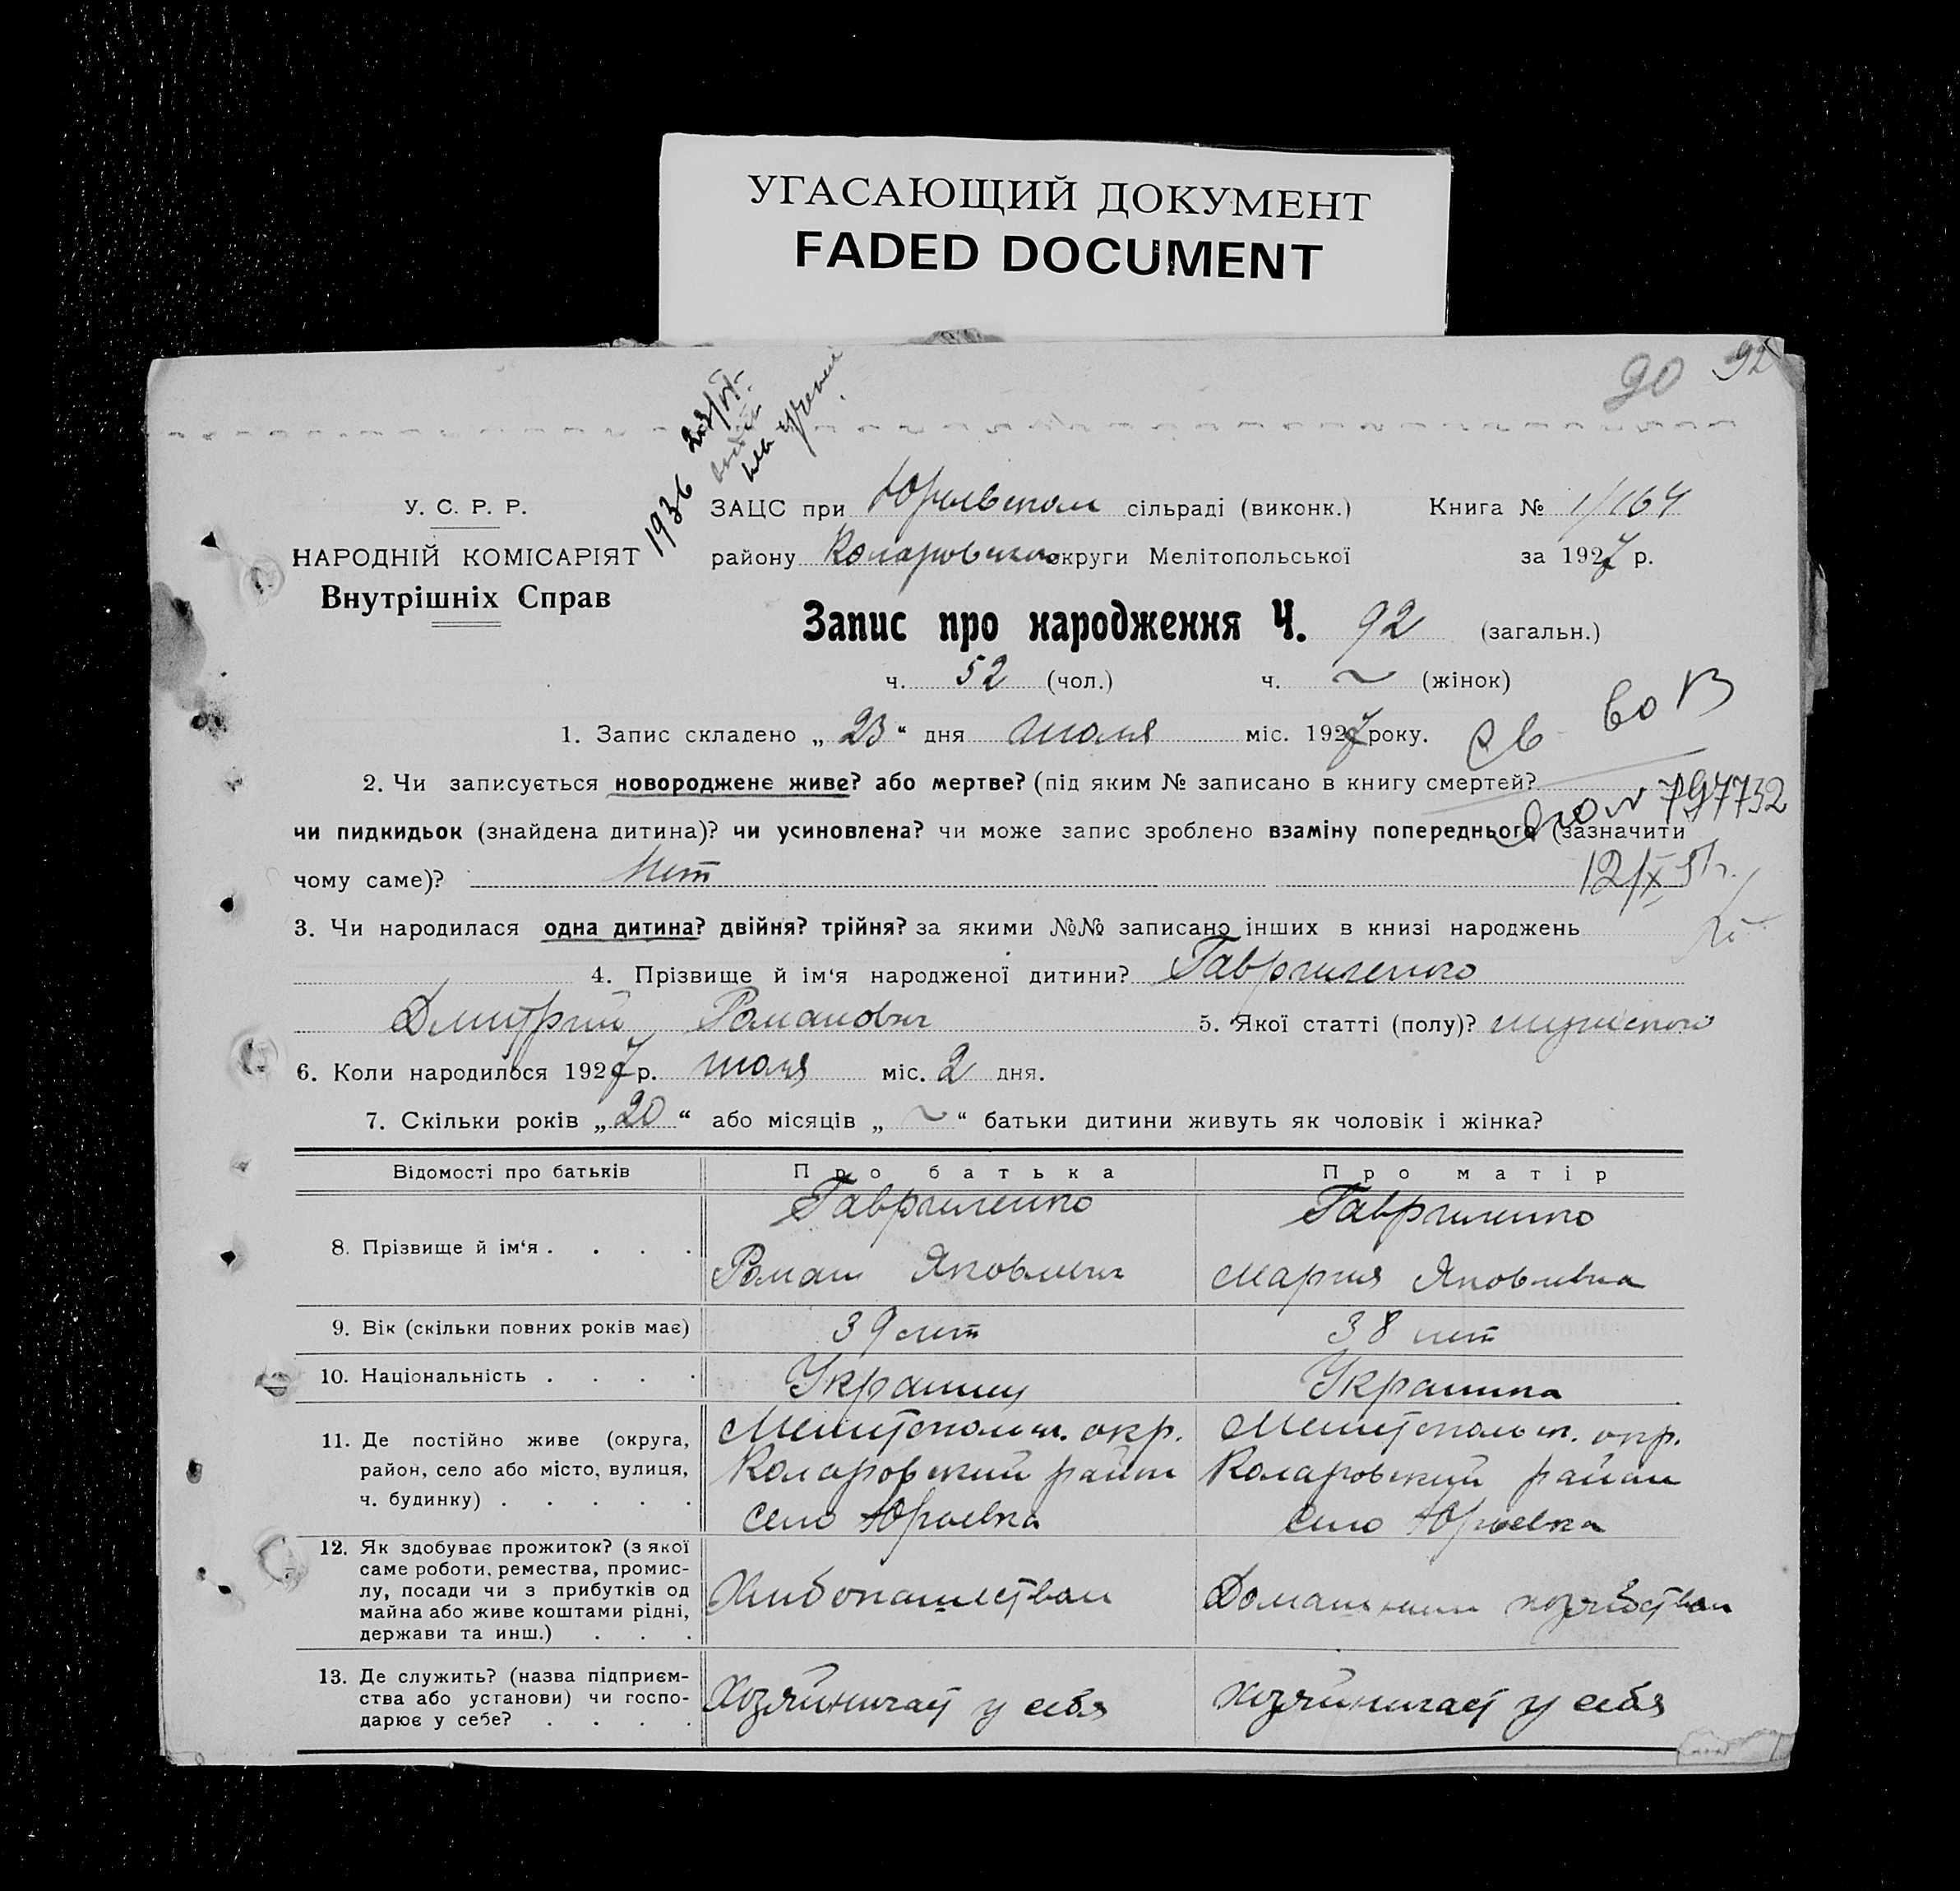 УГАСАЮЩИЙ ДОКУМЕНТ
FADED DOCUMENT
90 92
1936 23/VI
У. С. Р. Р.
НАРОДНІЙ КОМІСАРІЯТ
Внутрішніх Справ
ЗАЦС при Юрьевском сільраді (виконк.) Книга № 1/164
району Коларовского округи Мелітопольської за 1927 р.
Запис про народження Ч. 92 (загальн.)
ч. 52 (чол.) ч. ~ (жінок)
1. Запис складено „ 23 “ дня июля міс. 1927 року.
св во
2. Чи записується новороджене живе? або мертве? (під яким № записано в книгу смертей?
797732
чи пидкидьок (знайдена дитина)? чи усиновлена? чи може запис зроблено взаміну попереднього (зазначити
чому саме)? Нет
12/IX 51г.
3. Чи народилася одна дитина? двійня? трійня? за якими №№ записано інших в книзі народжень
4. Прізвище й ім‘я народженої дитини? Гавриленко
Дмитрий Романович 5. Якої статті (полу)? мужеского
6. Коли народилося 1927 р. июля міс. 2 дня.
7. Скільки років „ 20 “ або місяців „ ~ “ батьки дитини живуть як чоловік і жінка?
Відомості про батьків Про батька Про матір
8. Прізвище й ім‘я . . . .
Гавриленко
Роман Яковлевич
Гавриленко
Мария Яковлевна
9. Вік (скільки повних років має) 39 лет 38 лет
10. Національність . . . . Украинец Украинка
11. Де постійно живе (округа,
район, село або місто, вулиця,
ч. будинку) . . . . .
Мелитопольск. окр.
Коларовский район
село Юрьевка
Мелитопольск. окр.
Коларовский район
село Юрьевка
12. Як здобуває прожиток? (з якої
саме роботи, ремества, промис-
лу, посади чи з прибутків од
майна або живе коштами рідні,
держави та инш.) . . .
Хлебопашеством
Домашним хозяйством
13. Де служить? (назва підприєм-
ства або установи) чи госпо-
дарює у себе? . . . .
Хозяйничает у себя
хозяйничает у себя